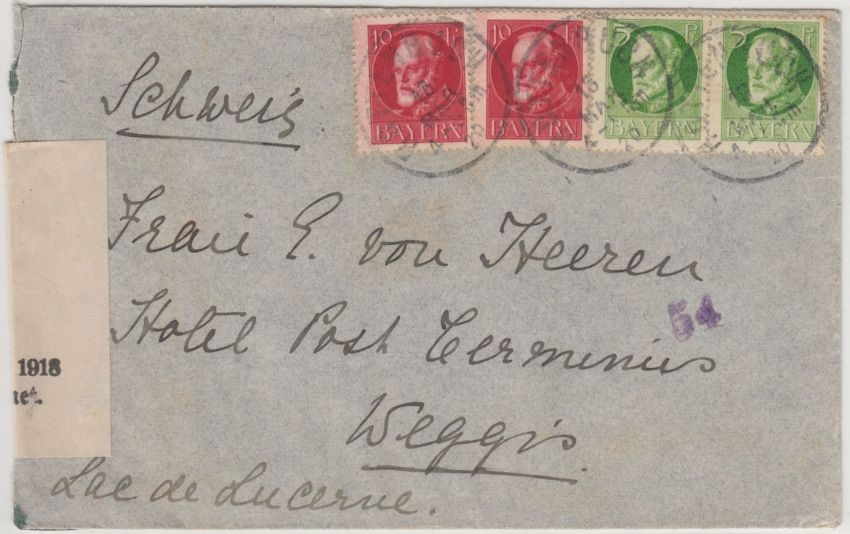 10 Pf 10 Pf 5 Pf 5 Pf
BAYERN BAYERN BAYERN BAYERN
Schweiz
Frau E. von Heeren
54
Hotel Post Terminus
1918
net.
Weggis
Lac de Lucerne.